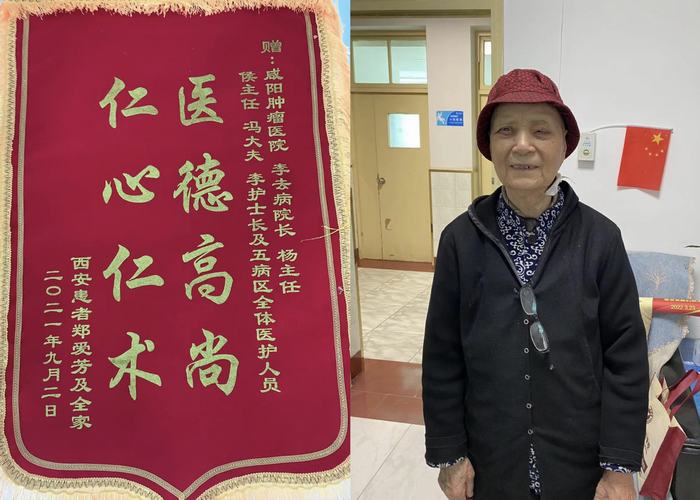 赠：咸阳肿瘤医院 李去病院长 杨主任
侯主任 冯大夫 李护士长及五病区全体医护人员
医德高尚
仁心仁术
西安患者郑爱芳及全家
二〇二一年九月二日
2022.3.23